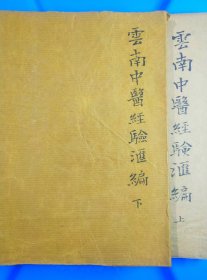 雲南中醫經驗滙編 上
雲南中醫經驗滙編 下